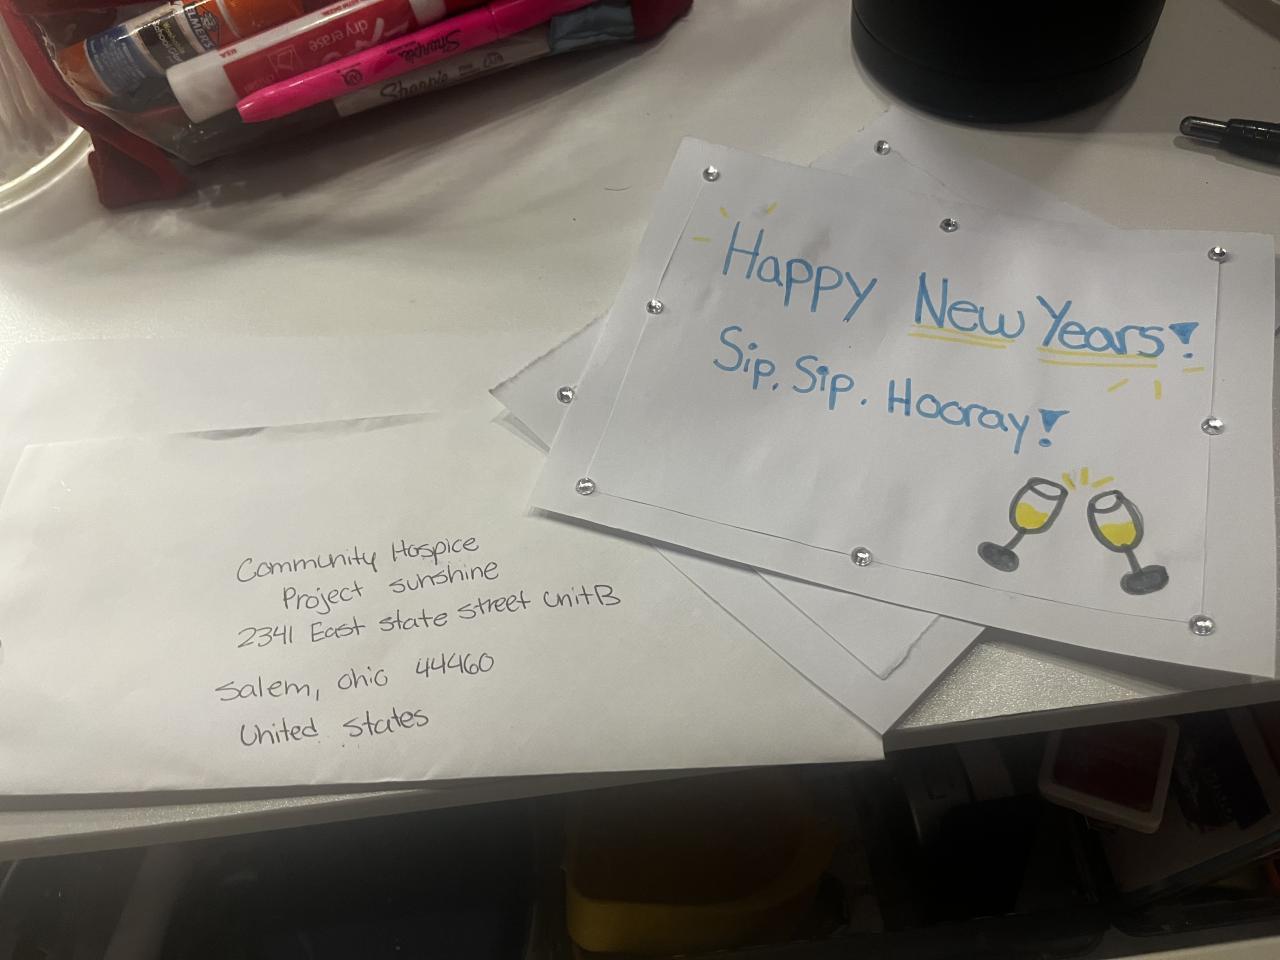 ELMER'S
Washable
School Glue
dry erase
Sharpie
Sharpie
Happy New Years!
Sip, Sip, Hooray!
Community Hospice
Project sunshine
2341 East state street unit B
Salem, ohio 44460
United states